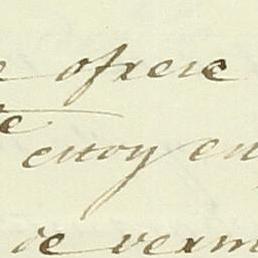 ofrece
estoy en
de verm